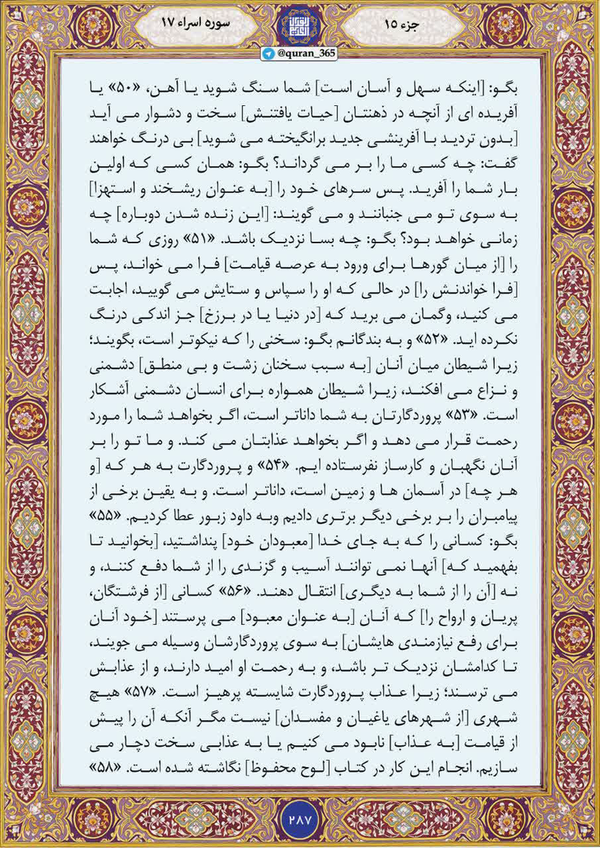 جزء ۱۵
سوره اسراء ۱۷
@quran_365
بگو: [اینکه سهل و آسان است] شما سنگ شوید یا آهن، «۵۰» یا
آفریده ای از آنچه در ذهنتان [حیات یافتنش] سخت و دشوار می آید
[بدون تردید با آفرینشی جدید برانگیخته می شوید] بی درنگ خواهند
گفت: چه کسی ما را بر می گرداند؟ بگو: همان کسی که اولین
بار شما را آفرید. پس سرهای خود را [به عنوان ریشخند و استهزا]
به سوی تو می جنبانند و می گویند: [این زنده شدن دوباره] چه
زمانی خواهد بود؟ بگو: چه بسا نزدیک باشد. «۵۱» روزی که شما
را [از میان گورها برای ورود به عرصه قیامت] فرا می خواند، پس
[فرا خواندنش را] در حالی که او را سپاس و ستایش می گویید، اجابت
می کنید، وگمان می برید که [در دنیا یا در برزخ] جز اندکی درنگ
نکرده اید. «۵۲» و به بندگانم بگو: سخنی را که نیکوتر است، بگویند؛
زیرا شیطان میان آنان [به سبب سخنان زشت و بی منطق] دشمنی
و نزاع می افکند، زیرا شیطان همواره برای انسان دشمنی آشکار
است. «۵۳» پروردگارتان به شما داناتر است، اگر بخواهد شما را مورد
رحمت قرار می دهد و اگر بخواهد عذابتان می کند. و ما تو را بر
آنان نگهبان و کارساز نفرستاده ایم. «۵۴» و پروردگارت به هر که [و
هر چه] در آسمان ها و زمین است، داناتر است. و به یقین برخی از
پیامبران را بر برخی دیگر برتری دادیم وبه داود زبور عطا کردیم. «۵۵»
بگو: کسانی را که به جای خدا [معبودان خود] پنداشتید، [بخوانید تا
بفهمید که] آنها نمی توانند آسیب و گزندی را از شما دفع کنند، و
نه [آن را از شما به دیگری] انتقال دهند. «۵۶» کسانی [از فرشتگان،
پریان و ارواح را] که آنان [به عنوان معبود] می پرستند [خود آنان
برای رفع نیازمندی هایشان] به سوی پروردگارشان وسیله می جویند،
تا کدامشان نزدیک تر باشد، و به رحمت او امید دارند، و از عذابش
می ترسند؛ زیرا عذاب پروردگارت شایسته پرهیز است. «۵۷» هیچ
شهری [از شهرهای یاغیان و مفسدان] نیست مگر آنکه آن را پیش
از قیامت [به عذاب] نابود می کنیم یا به عذابی سخت دچار می
سازیم. انجام این کار در کتاب [لوح محفوظ] نگاشته شده است. «۵۸»
۲۸۷